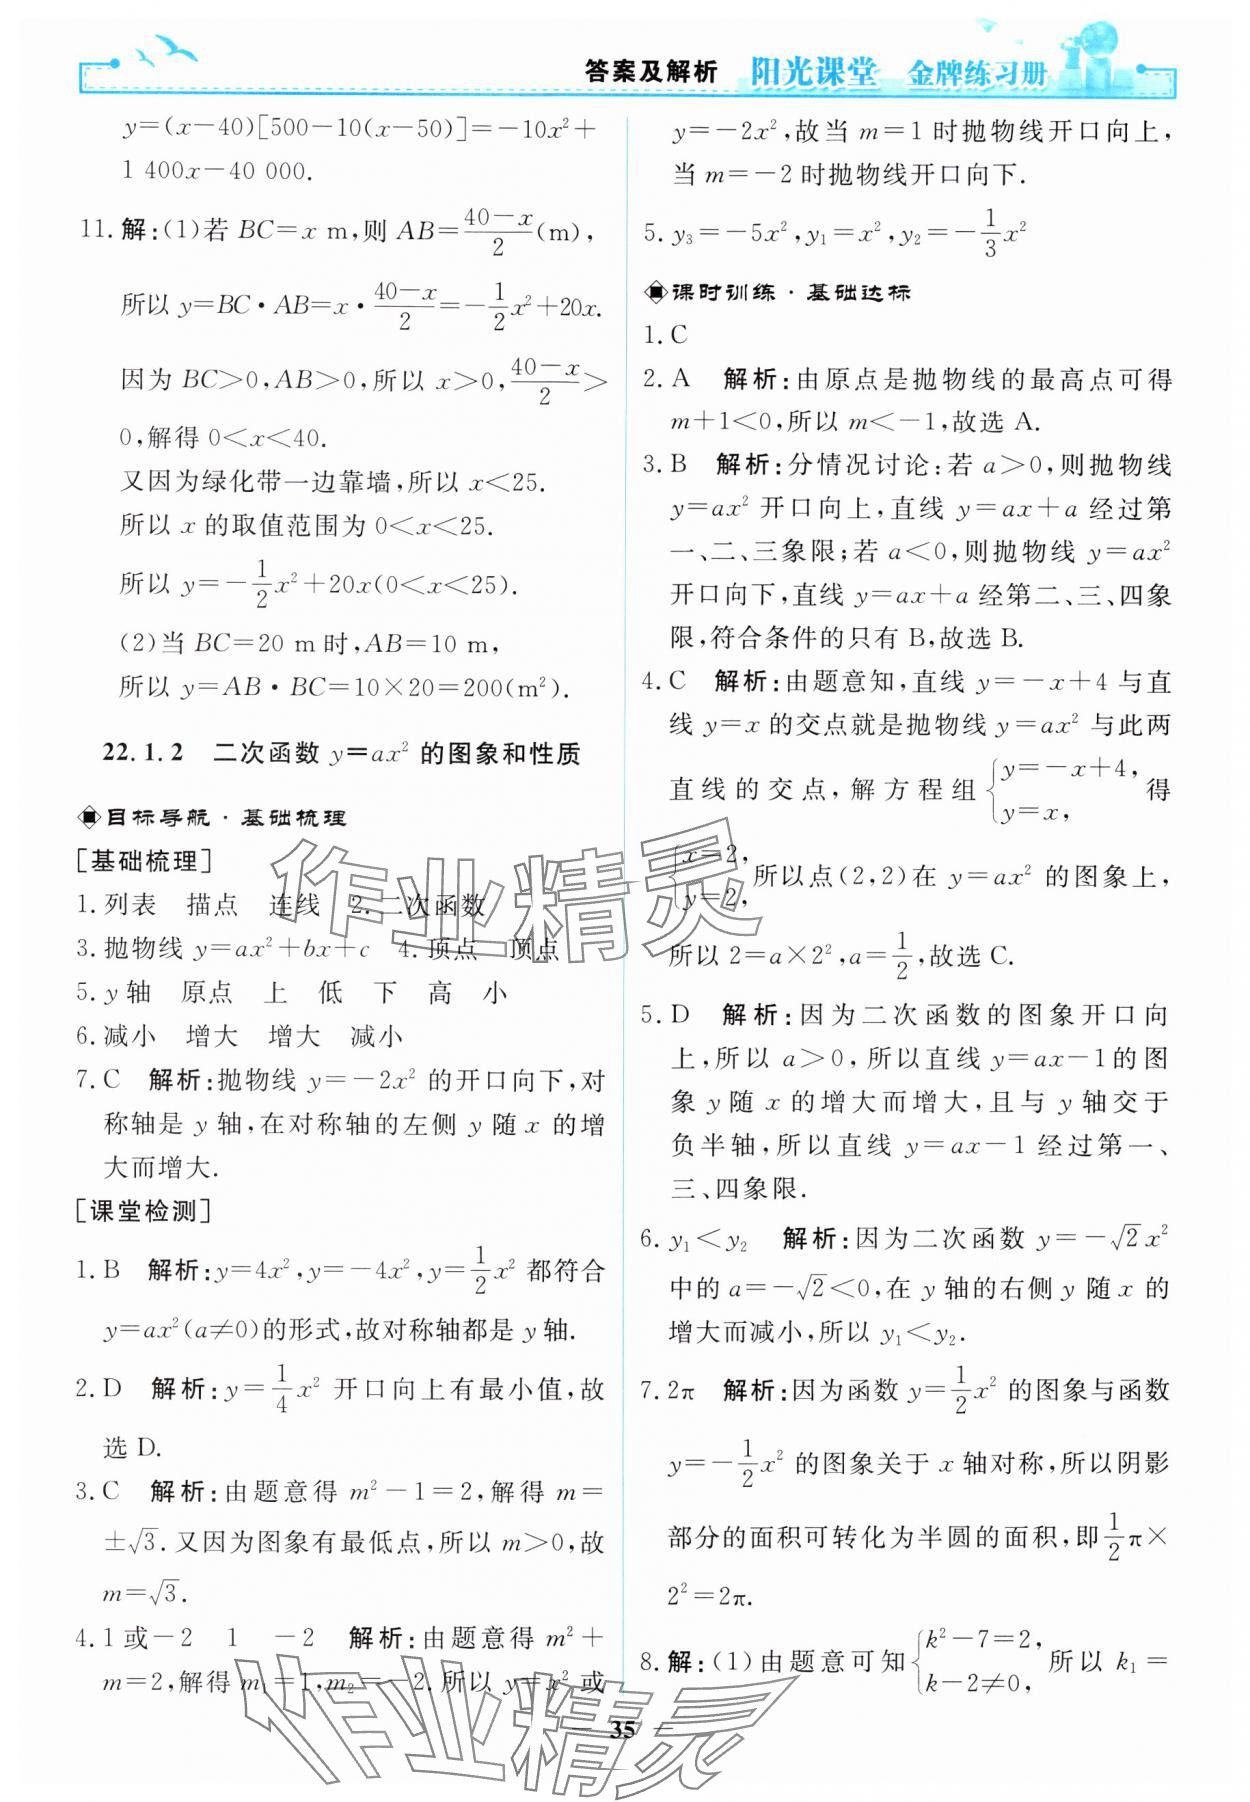 答案及解析 阳光课堂 金牌练习册
y=(x-40)[500-10(x-50)]=-10x²+
1 400x-40 000.
11.解:(1)若 BC=x m,则 AB=\frac{40-x}{2}(m),
所以 y=BC·AB=x·\frac{40-x}{2}=-\frac{1}{2}x²+20x.
因为 BC>0,AB>0,所以 x>0,\frac{40-x}{2}>
0,解得 0<x<40.
又因为绿化带一边靠墙,所以 x<25.
所以 x 的取值范围为 0<x<25.
所以 y=-\frac{1}{2}x²+20x(0<x<25).
(2)当 BC=20 m 时,AB=10 m,
所以 y=AB·BC=10×20=200(m²).
22.1.2 二次函数 y=ax² 的图象和性质
目标导航·基础梳理
[基础梳理]
1.列表 描点 连线 2.二次函数
3.抛物线 y=ax²+bx+c 4.顶点 顶点
5.y轴 原点 上 低 下 高 小
6.减小 增大 增大 减小
7.C 解析:抛物线 y=-2x² 的开口向下,对
称轴是 y 轴,在对称轴的左侧 y 随 x 的增
大而增大.
[课堂检测]
1.B 解析:y=4x²,y=-4x²,y=\frac{1}{2}x² 都符合
y=ax²(a≠0)的形式,故对称轴都是 y 轴.
2.D 解析:y=\frac{1}{4}x² 开口向上有最小值,故
选 D.
3.C 解析:由题意得 m²-1=2,解得 m=
±√3.又因为图象有最低点,所以 m>0,故
m=√3.
4.1或-2 1 -2 解析:由题意得 m²+
m=2,解得 m₁=1,m₂=-2.所以 y=x² 或
y=-2x²,故当 m=1 时抛物线开口向上,
当 m=-2 时抛物线开口向下.
5.y₃=-5x²,y₁=x²,y₂=-\frac{1}{3}x²
课时训练·基础达标
1.C
2.A 解析:由原点是抛物线的最高点可得
m+1<0,所以 m<-1,故选 A.
3.B 解析:分情况讨论:若 a>0,则抛物线
y=ax² 开口向上,直线 y=ax+a 经过第
一、二、三象限;若 a<0,则抛物线 y=ax²
开口向下,直线 y=ax+a 经第二、三、四象
限,符合条件的只有 B,故选 B.
4.C 解析:由题意知,直线 y=-x+4 与直
线 y=x 的交点就是抛物线 y=ax² 与此两
直线的交点,解方程组{y=-x+4, y=x, 得
{x=2, y=2, 所以点(2,2)在 y=ax² 的图象上,
所以 2=a×2²,a=\frac{1}{2},故选 C.
5.D 解析:因为二次函数的图象开口向
上,所以 a>0,所以直线 y=ax-1的图
象 y 随 x 的增大而增大,且与 y 轴交于
负半轴,所以直线 y=ax-1 经过第一、
三、四象限.
6.y₁<y₂ 解析:因为二次函数 y=-√2x²
中的 a=-√2<0,在 y 轴的右侧 y 随 x 的
增大而减小,所以 y₁<y₂.
7.2π 解析:因为函数 y=\frac{1}{2}x² 的图象与函数
y=-\frac{1}{2}x² 的图象关于 x 轴对称,所以阴影
部分的面积可转化为半圆的面积,即\frac{1}{2}π×
2²=2π.
8.解:(1)由题意可知{k²-7=2, k-2≠0, 所以 k₁=
— 35 —
作业精灵
作业精灵